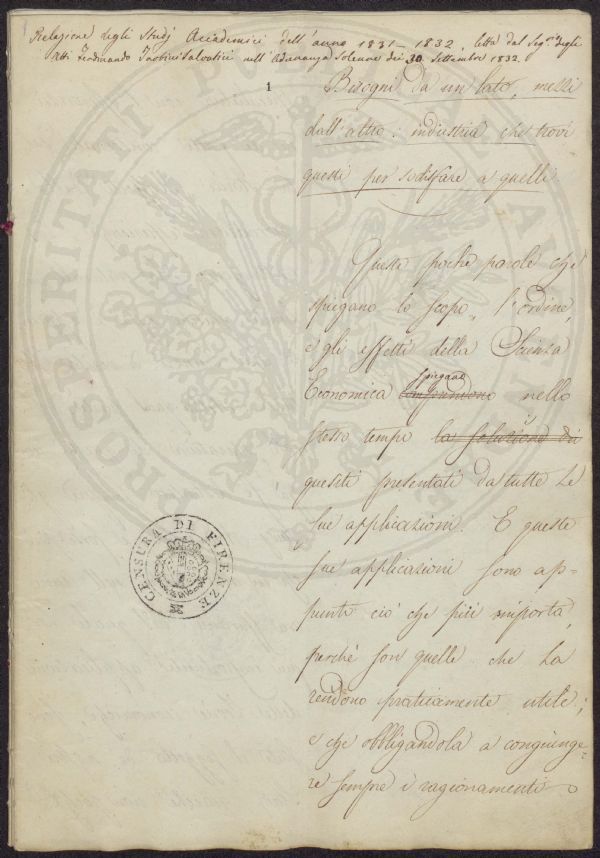 Relazione degli Studj Accademici dell'anno 1831-1832, letta dal Seg.rio degli
Atti Ferdinando Tartini Salvatici nell'Adunanza Solenne dei 30 Settembre 1832.
1
Bisogni da un lato, mezzi
dall'altro: industria che trovi
questi per sodisfare a quelli
Queste poche parole che
spiegano lo scopo, l'ordine,
e gli effetti della Scienza
spiegano
Economica comprendono nello
i
stesso tempo la soluzione dei
quesiti presentati da tutte le
sue applicazioni. E queste
sue applicazioni sono ap=
punto ciò che più importa,
perchè son quelle che la
rendono praticamente utile;
e che obbligandola a congiunge=
re sempre i ragionamenti
CENSURA DI FIRENZE
PROSPERITATI PUBLICAE AUGENDAE